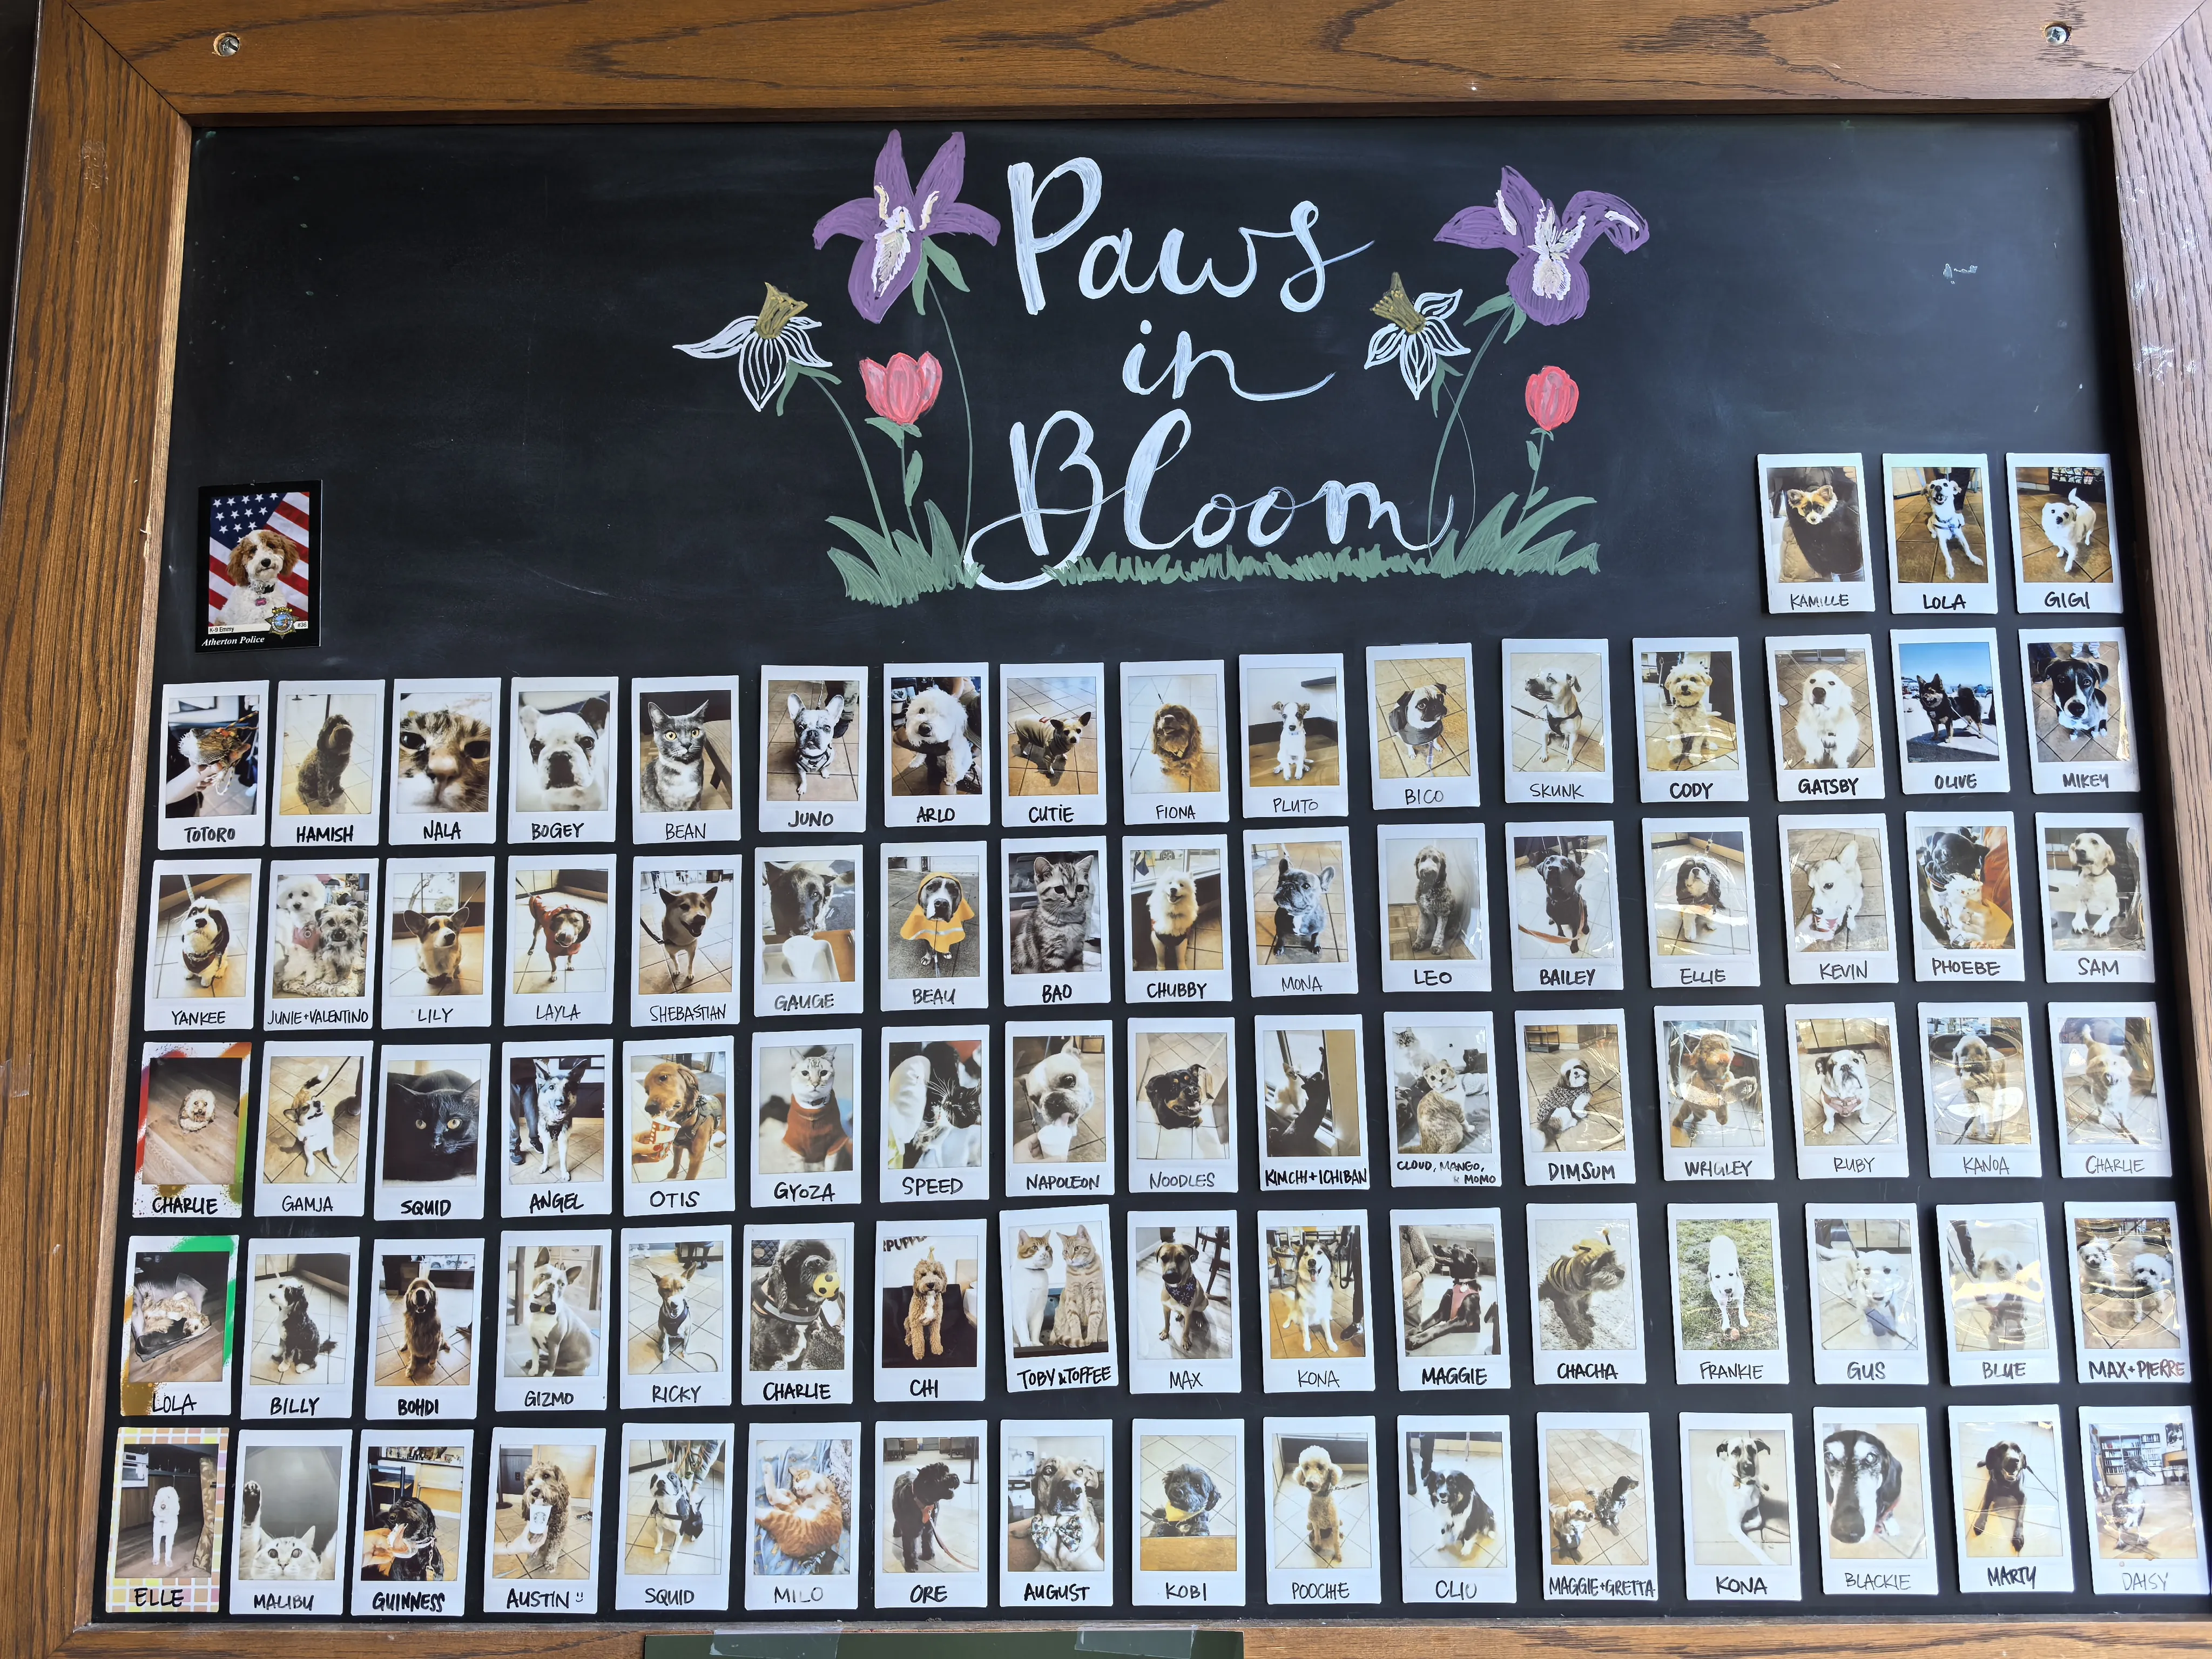 Paws
in
Bloom
K-9 Emmy #36
Atherton Police
KAMILLE LOLA GIGI
TOTORO HAMISH NALA BOGEY BEAN JUNO ARLO CUTiE FIONA PLUTO BICO SKUNK CODY GATSBY OLIVE MIKEY
YANKEE JUNIE+VALENTINO LILY LAYLA SHEBASTIAN GAUGE BEAU BAO CHUBBY MONA LEO BAILEY ELLIE KEVIN PHOEBE SAM
CHARLIE GAMJA SQUID ANGEL OTIS GYOZA SPEED NAPOLEON NOODLES KIMCHI+ICHIBAN CLOUD, MANGO, & MOMO DIMSUM WRIGLEY RUBY KANOA CHARLIE
LOLA BILLY BOHDI GIZMO RICKY CHARLIE CHI TOBY & TOFFEE MAX KONA MAGGIE CHACHA FRANKIE GUS BLUE MAX+PIERRE
ELLE MALIBU GUINNESS AUSTIN SQUID MILO ORE AUGUST KOBI POOCHIE CLIO MAGGIE+GRETTA KONA BLACKIE MARTY DAISY